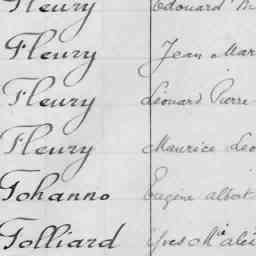 Fleury Edouard M
Fleury Jean Mar
Fleury Léonard Pierre
Fleury Maurice Leo
Fohanno Eugène Albert
Folliard Yves Mie Alex